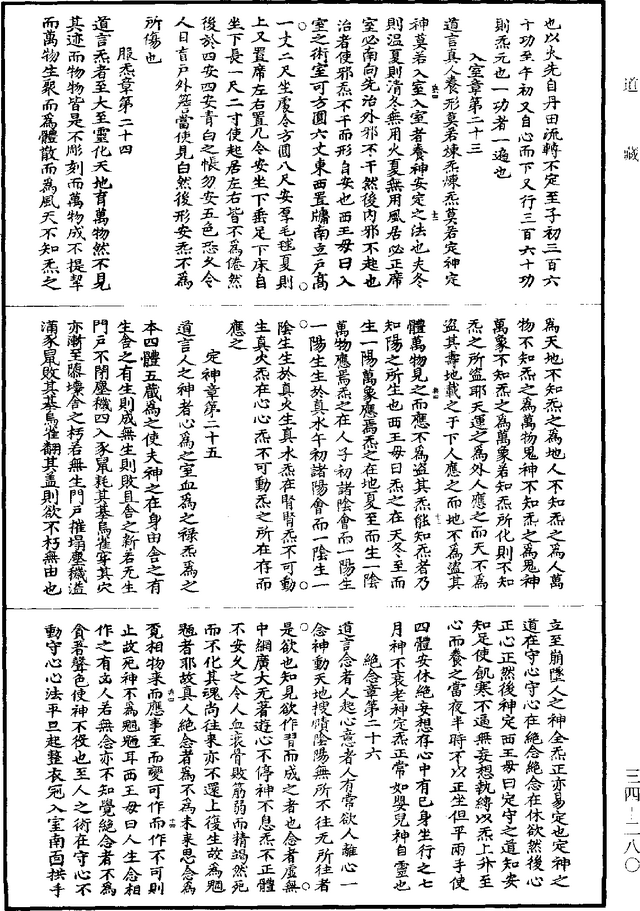 也以火先自丹田流轉不定至子初三百六
十功至午初又自心而下又行三百六十功
則炁元也一功者一遍也
入室章第二十三
道言真人養形莫若煉炁煉炁莫若定神定
神莫若入室入室者養神安定之法也夫冬
則溫夏則清冬無用火夏無用風居必正席
室必南向先治外邪不干然後內邪不起也
治者使邪炁不干而形自安也西王母曰入
室之術室可方圓六丈東西置牖南立戶高
一丈二尺坐處令方圓八尺安厚毛毯夏則
上又置席左右置几令安坐下垂足下床自
坐下長一尺二寸使起居左右皆不為倦然
後於四安四安青白之帳勿安五色恐久令
人日盲戶外簷當使見白然後形安炁不為
所傷也
服炁章第二十四
道言炁者至大至靈化天地育萬物然不見
其迹而物物皆是不彫刻而萬物成不提挈
而萬物生聚而為體散而為風天不知炁之
為天地不知炁之為地人不知炁之為人萬
物不知炁之為萬物鬼神不知炁之為鬼神
萬象不知炁之為萬象若知炁所化則不知
炁之所盜耶天運之為外人應之而天不為
盜其壽地載之于下人應之而地不為盜其
體萬物見之而應不為盜其炁能知炁者乃
知陽之所生也西王母曰炁之在天冬至而
生一陽萬象應焉炁之在地夏至而生一陰
萬物應焉炁之在人子初諸陰會而一陽生
一陽生生於真水午初諸陽會而一陰生一
陰生生於真火生真水炁在腎腎炁不可動
生真火炁在心心炁不可動炁之所在存而
應之
定神章第二十五
道言人之神者心為之室血為之祿炁為之
本四體五藏為之使夫神之在身由舍之有
生舍之有生則成無生則敗且舍之新若无生
門戶不閉塵穢四入豕鼠耗其基鳥雀穿其穴
亦漸至隳壞舍之朽若無生門戶摧塌塵穢溢
滿豕鼠敗其基鳥雀翻其蓋則欲不朽無由也
立至崩墜人之神全炁正亦易定也定神之
道在守心守心在絕念絕念在休欲然後心
正心正然後神定西王母曰定守之道知安
知足使飢寒不逼無妄想執縛以炁上升至
心而養之當夜半時不以正坐但平兩手使
四體安休絕妄想存心中有已身坐行之七
月神不衰老神定炁正常如嬰兒神自靈也
絕念章第二十六
道言念者人起心意者人有常欲人離心一
念神動天地搜情陰陽無所不往无所往者
是欲也知見欲作習而成之者也念者虛無
中網廣大无著遊心不停神不息炁不正體
不安久之令人血衰骨敗筋弱而精竭然死
而不化其魂尚往來亦不還上復生故為魍
魎者耶故真人絕念者為不為未來思念為
覓相物來而應事至而變可作而作不可則
止故死神不為魍魎耳西王母曰人生念相
作之有凶人若無念亦不知覺絕念者不為
貪著聲色使神不役也至人之術在守心不
動守心心法平旦起整衣冠入室南面拱手
道藏
三四－二八〇